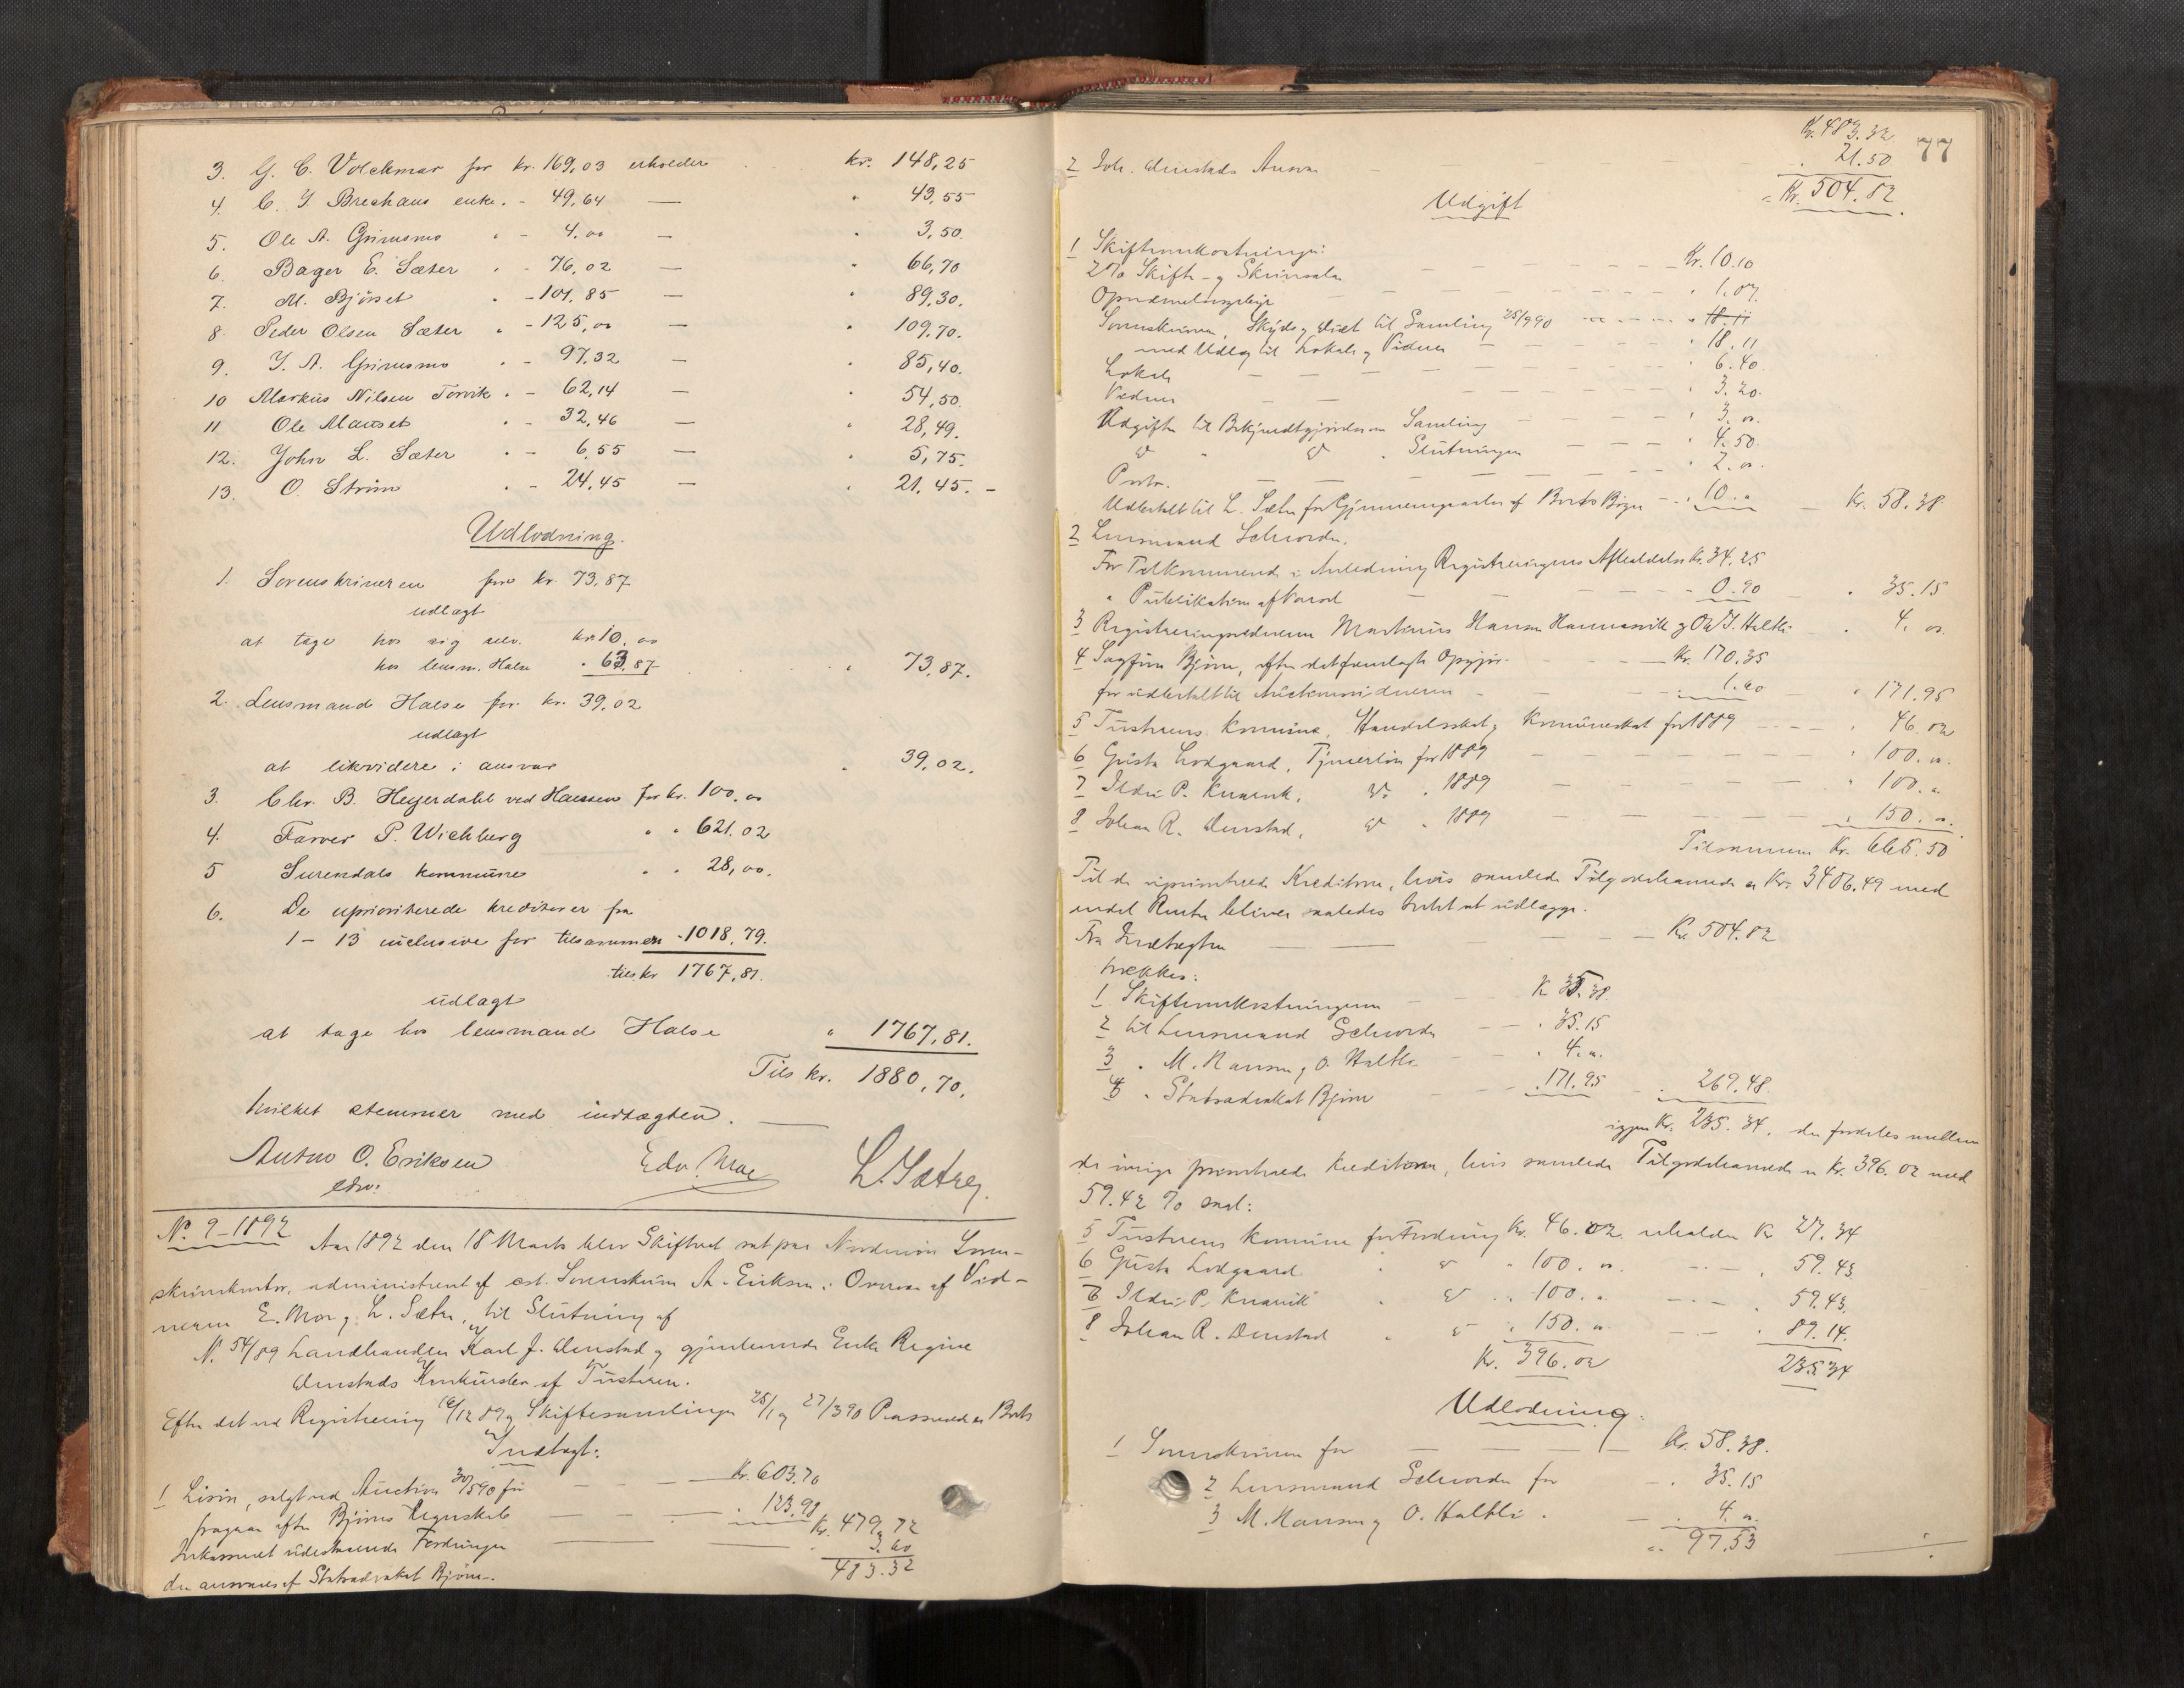 3. G. C. Volckmar for kr. 169,03 erholder kr. 148,25
4. C. J. Brechans enke. - 49,64 — " 43,55
5. Ole A. Grimsmo " - 4.00 — " 3,50.
6. Bager E. Sæter " - 76,02 — " 66,70
7. M. Bjørset " - 101,85 — " 89,30.
8. Peder Olsen Sæter " - 125,00 — " 109,70.
9. J. A. Grimsmo " - 97,32 — " 85,40.
10 Markus Nilsen Torvik " - 62,14 — " 54,50.
11 Ole Mauset " - 32,46 — " 28,49.
12. John L. Sæter " - 6,55 — " 5,75.
13. O. Strøm " - 24,45 — " 21,45. -
Udlodning.
1. Sorenskriveren for kr. 73,87
udlagt
at tage hos sig selv. kr. 10,00
hos lensm. Halse " 63,87 " 73,87.
2. Lensmand Halse for kr. 39,02
udlagt
at likvidere i ansvar " 39,02.
3. Chr. B. Heyerdahl ved Hanssen for kr. 100,00
4. Farver P. Wichberg " " 621.02
5 Surendals kommune " " 28,00.
6. De uprioriterede kreditorer fra
1 - 13 inclusive for tilsammen - 1018,79.
tils kr 1767,81.
udlagt
at tage hos lensmand Halse " 1767,81.
Tils kr. 1880,70.
hvilket stemmer med indtægten. —
Anton O. Eriksen Edv. Moe L. Sæter
cst.
No. 9 - 1892 Aar 1892 den 18 Marts blev Skifteret sat paa Nordmøre Soren-
skriverkontor, administreret af cst. Sorenskriver A. Eriksen i Overvær af Vid-
nerne E. Moe og L. Sæter, til Slutning af
N. 54/89 Landhandler Karl J. Ørnstad og gjenlevende Enke Regine
Ørnstads Konkursbo af Tustern.
Efter det ved Registrering 16/12 89 og Skiftesamlinger 25/1 og 27/3 90 Passerede er Boets
Indtægt:
1 Løsøre, solgt ved Auction 30/5 90 for — Kr. 603.70
fragaar efter Bjørns Regnskab — " 123.98 Kr. 479.72
Inkasseret udestaaende Fordringer — " 3.60
der ansvares af Statsadvokat Bjørn. 483.32
77
Kr. 483.32
2 Joh. Ørnstads Ansvar — " 21.50
Kr. 504.82
Udgift
1 Skifteomkostninger:
2% Skifte- og Skriversalær — Kr. 10.10
Opnævnelsesgebyr — " 1.07
Sorenskriveren, Skyds og Diæt til Samling 25/9 90 — " 18.11
med Udlæg til Lokale og Vidner — " 18.11
Lokale — " 6.40
Vidner — " 3.20.
Udgifter til Bekjendtgjørelse om Samling — " 3.00
do " do " Slutningen — " 4.50.
Porto. — " 2.00.
Udbetalt til L. Sæter for Gjennemgaaelse af Boets Bøger — " 10.00 — Kr. 58.38
2 Lensmand Schrøder.
For Tilkommende i Anledning Registreringens Afholdelse Kr. 34.25
" Publikation af — " 0.90 — " 35.15
3 Registreringsvidnerne Martinus Hansen og Ole J. Haltli " 4.00
4 Sagfører Bjørn, efter det fremlagte Opgjør — Kr. 170.35
for udbetalt til Auctionsvidnerne — " 1.60 — " 171.95
5 Tusterens Kommune, Handelsskat og Kommuneskat for 1889 — " 46.02
6 Gusta Lodgaard, Tjenerløn for 1889 — " 100.00.
7 Ildri P. Knarvik, do. " 1889 — " 100.00
8 Johan R. Ørnstad, do " 1889 — " 150.00.
Tilsammen Kr. 665.50
Til de upriviterede Kreditorer, hvis samlede Tilgodehavende er Kr. 3406.49 med
endel Renter bliver saaledes Intet at udlægge.
Fra Indtægten — Kr. 504.82
trækkes:
1 Skifteomkostningerne — Kr 58.38
2 til Lensmand Schrøder — " 35.15
3 " M. Hansen og O. Haltli — " 4.00.
4 " Statsadvokat Bjørn — " 171.95 — " 269.48
igjen Kr. 235.34. der fordeles mellem
de øvrige prioriterede Kreditorer, hvis samlede Tilgodehavende er Kr. 396.02 med
59.42 % saal:
5 Tusterens Kommune for Fordring Kr. 46.02. erholder Kr 27.34
6 Gusta Lodgaard " do " 100.00. — " 59.43
7 Ildri P. Knarvik " do " 100.00 — " 59.43.
8 Johan R. Ørnstad " do " 150.00 — " 89.14.
Kr. 396.02 235.34
Udlodning.
1 Sorenskriveren for — Kr. 58.38.
2 Lensmand Schrøder for — " 35.15
3 M. Hansen og O. Haltli. — " 4.00.
" 97.53